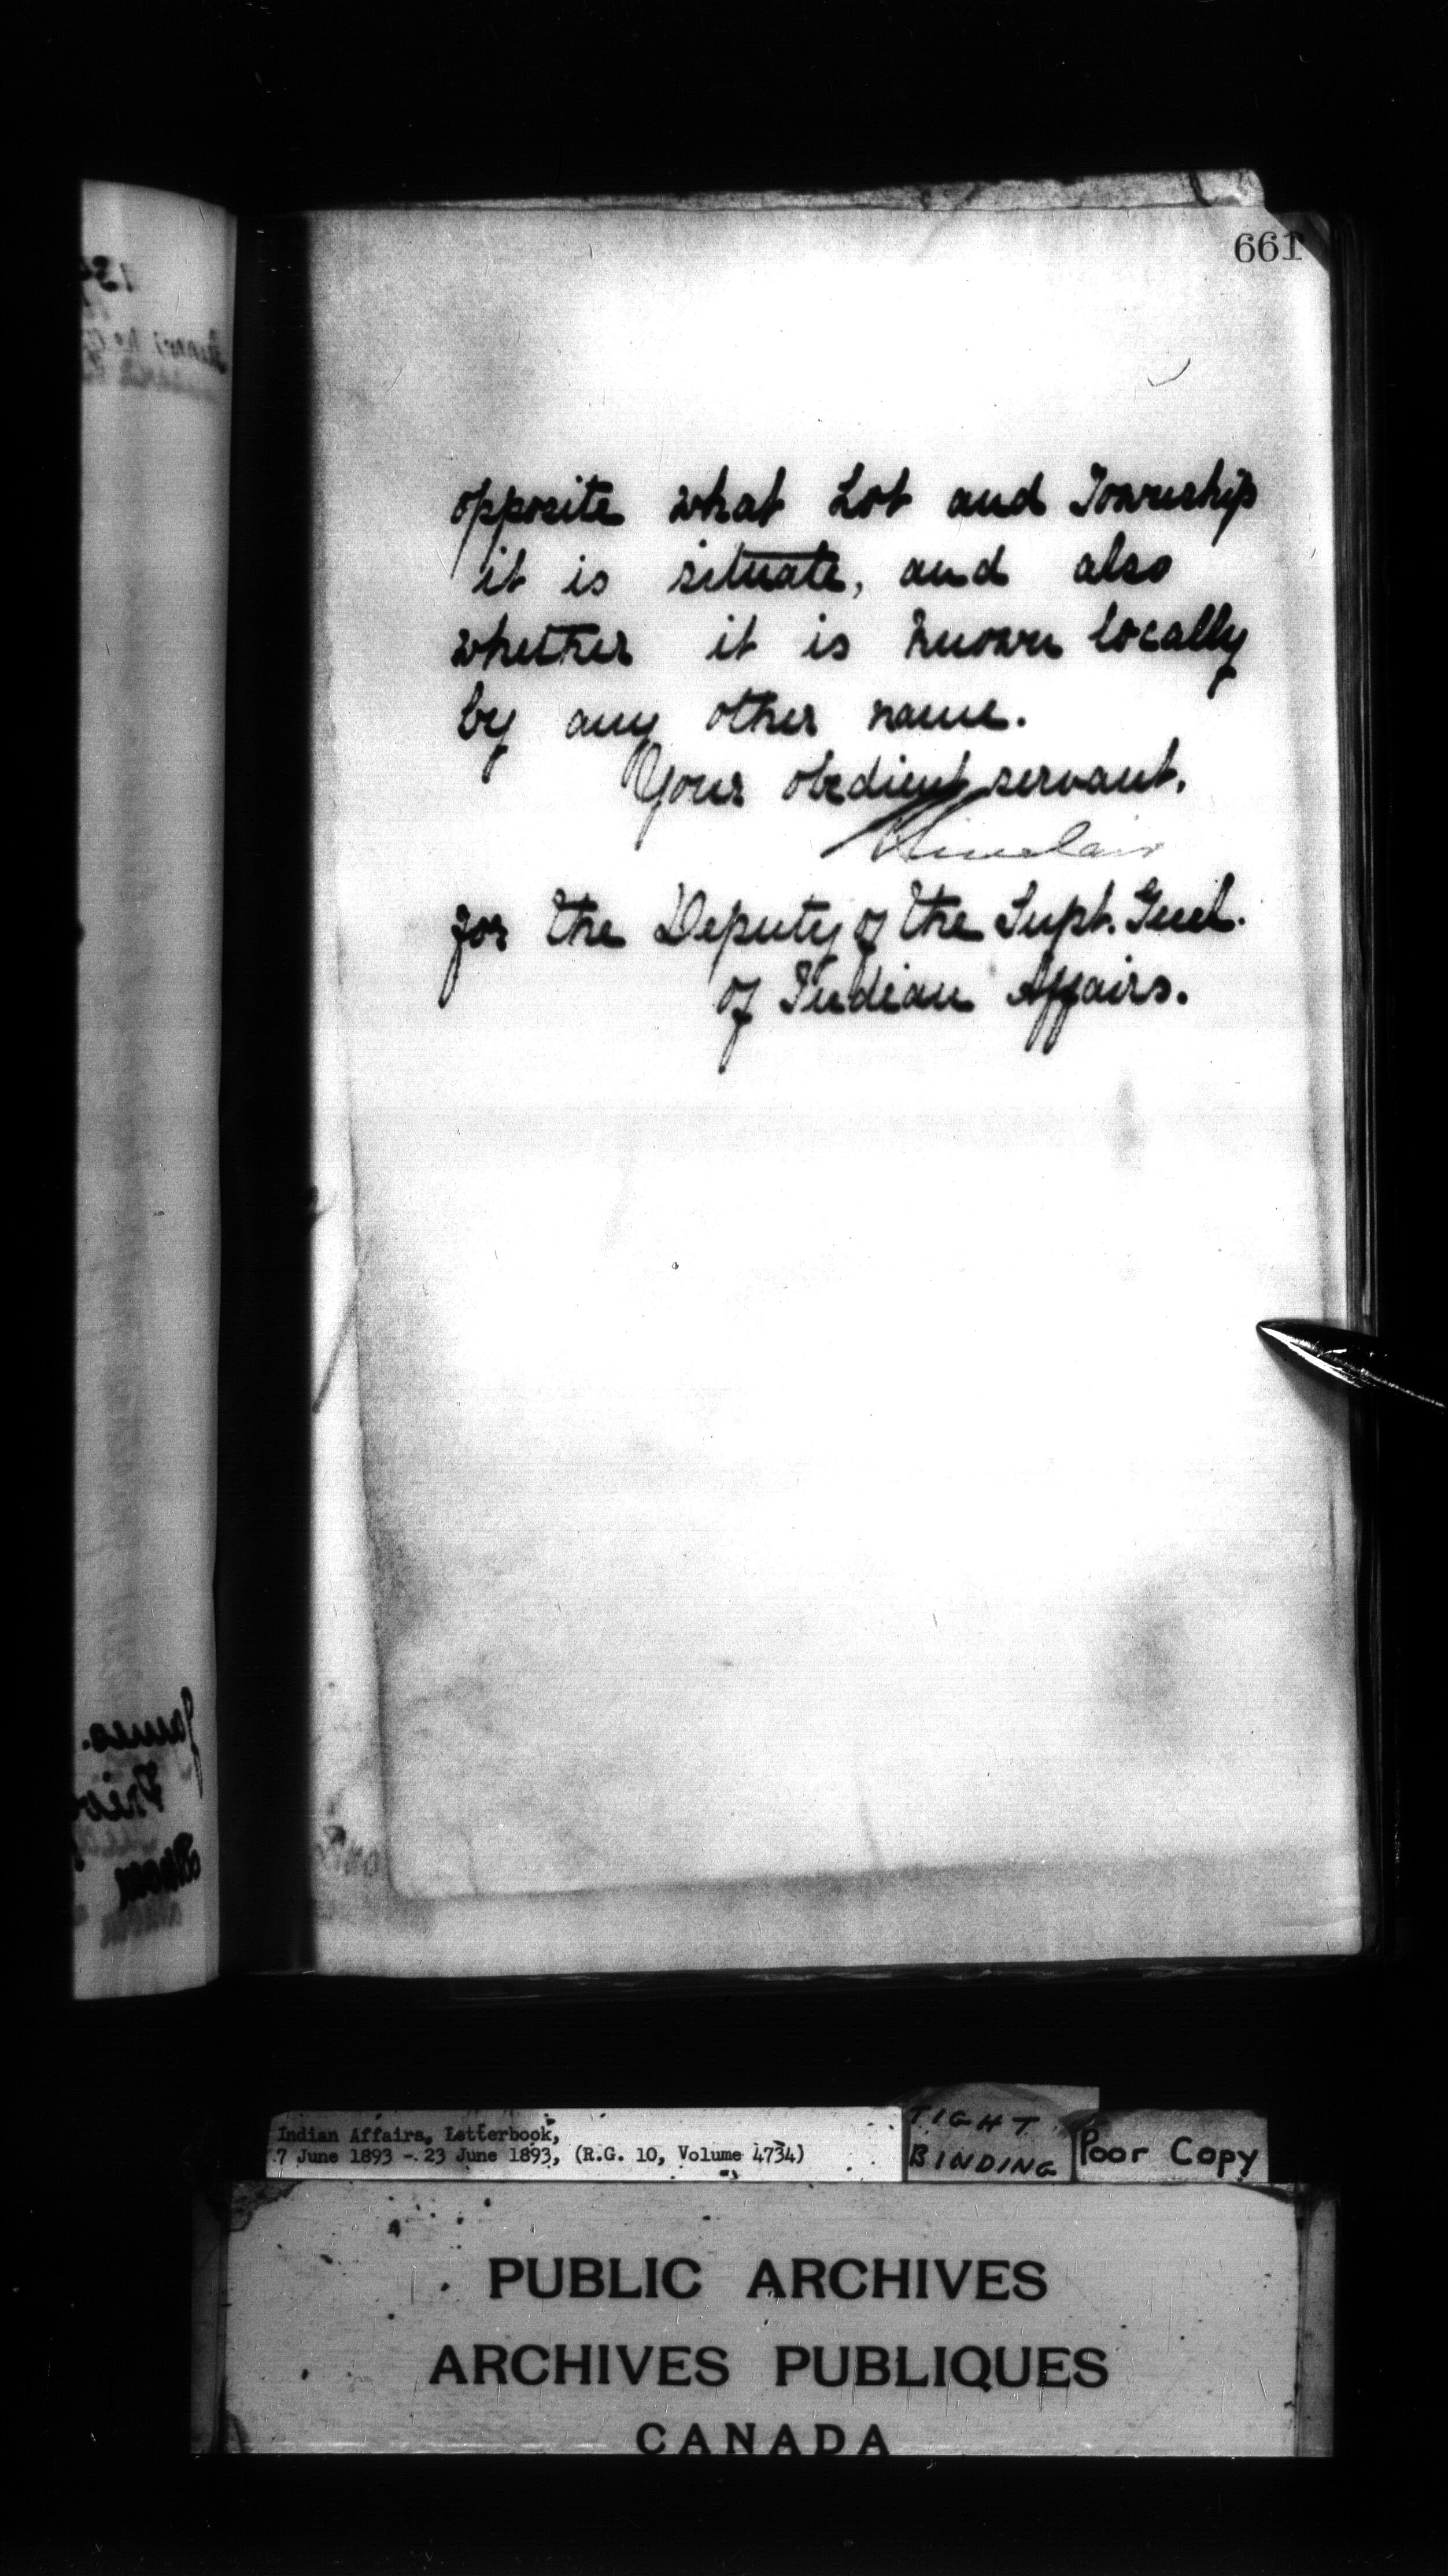 661
opposite what Lot and Township
it is situate, and also
whether it is known locally
by any other name.
Your obedient servant,
Sinclair
for the Deputy of the Supt. Genl.
of Indian Affairs.
James.
Indian Affairs, Letterbook,
7 June 1893 - 23 June 1893, (R.G. 10, Volume 4734)
TIGHT
BINDING
Poor Copy
PUBLIC ARCHIVES
ARCHIVES PUBLIQUES
CANADA